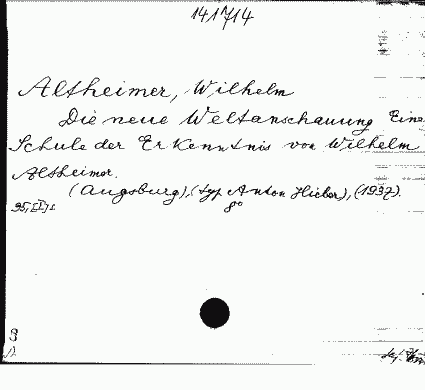 141714
Altheimer, Wilhelm
Die neue Weltanschauung Eine
Schule der Erkenntnis von Wilhelm
Altheimer.
(Augsburg), (typ Anton Hieber), (1937).
8°